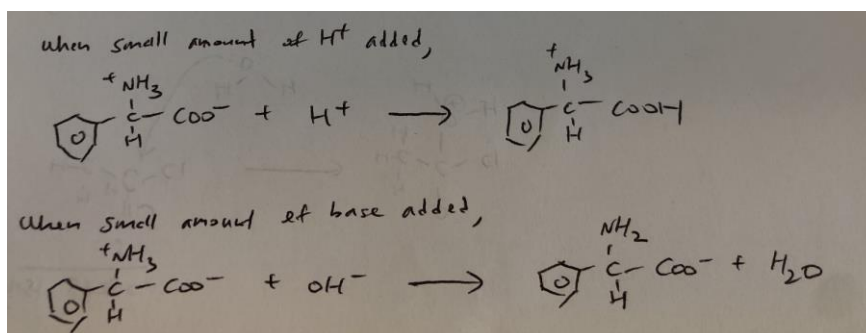 when small amount of H⁺ added,
⁺NH₃
C — COO⁻ + H⁺ → 
H
⁺NH₃
C — COOH
H
When small amount of base added,
⁺NH₃
C — COO⁻ + OH⁻ →
H
NH₂
C — COO⁻ + H₂O
H